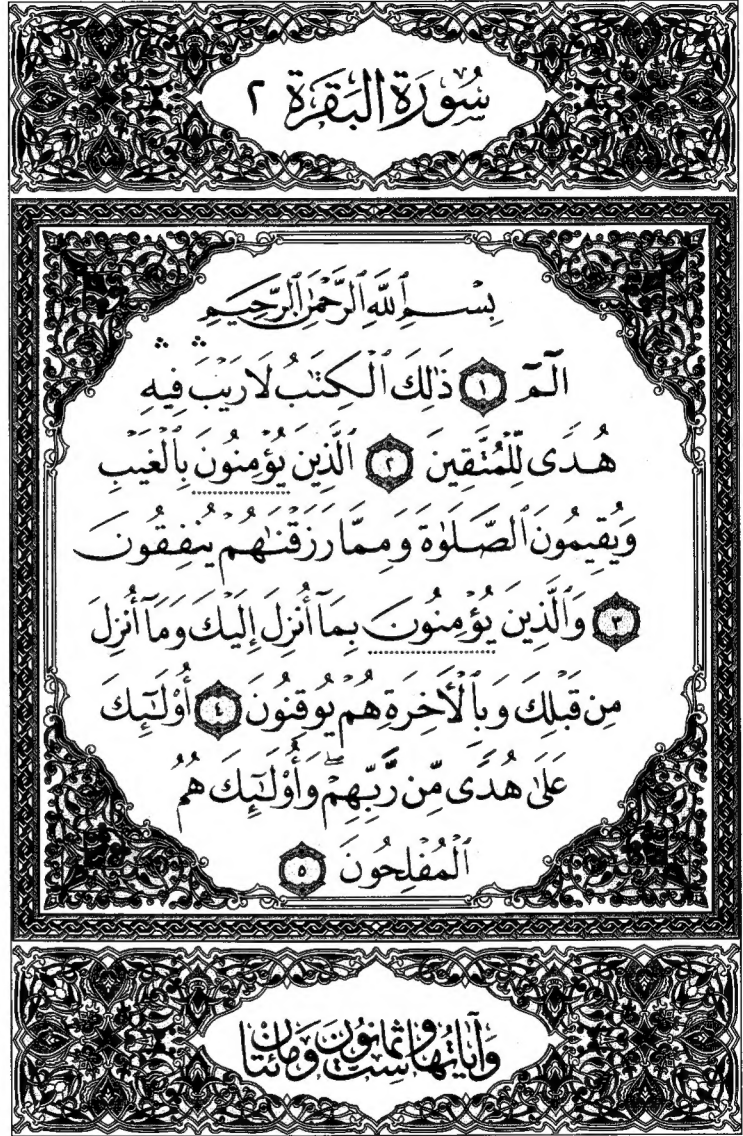 سُورَةُ البَقَرَةِ ٢
بِسْمِ ٱللَّهِ ٱلرَّحْمَٰنِ ٱلرَّحِيمِ
الٓمٓ ١ ذَٰلِكَ ٱلْكِتَٰبُ لَا رَيْبَ ۛ فِيهِ ۛ
هُدًى لِّلْمُتَّقِينَ ٢ ٱلَّذِينَ يُؤْمِنُونَ بِٱلْغَيْبِ
وَيُقِيمُونَ ٱلصَّلَوٰةَ وَمِمَّا رَزَقْنَٰهُمْ يُنفِقُونَ
٣ وَٱلَّذِينَ يُؤْمِنُونَ بِمَآ أُنزِلَ إِلَيْكَ وَمَآ أُنزِلَ
مِن قَبْلِكَ وَبِٱلْأَخِرَةِ هُمْ يُوقِنُونَ ٤ أُوْلَٰٓئِكَ
عَلَىٰ هُدًى مِّن رَّبِّهِمْ ۖ وَأُوْلَٰٓئِكَ هُمُ
ٱلْمُفْلِحُونَ ٥
وَآيَاتُهَا سِتٌّ وَثَمَانُونَ وَمِائَتَانِ